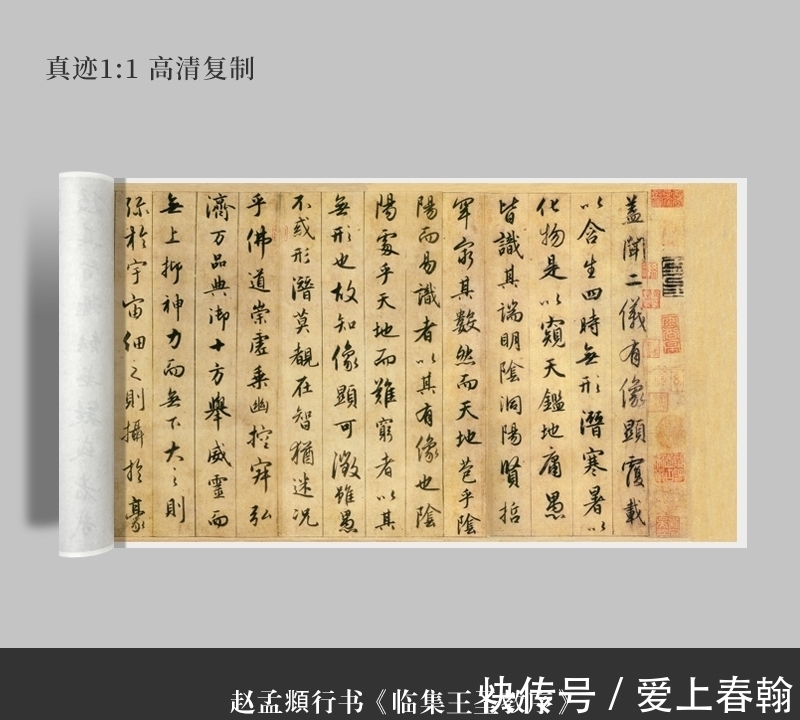 真迹1:1 高清复制
蓋聞二儀有像顯覆載
以含生四時無形潛寒暑以
化物是以窺天鑑地庸愚
皆識其端明陰洞陽賢哲
罕窮其數然而天地苞乎陰
陽而易識者以其有像也陰
陽處乎天地而難窮者以其
無形也故知像顯可徵雖愚
不惑形潛莫覩在智猶迷况
乎佛道崇虛乘幽控寂弘
濟万品典御十方舉威靈而
無上抑神力而無下大之則
弥於宇宙細之則攝於豪
赵孟頫行书《临集王圣教序》
快传号 / 爱上春翰